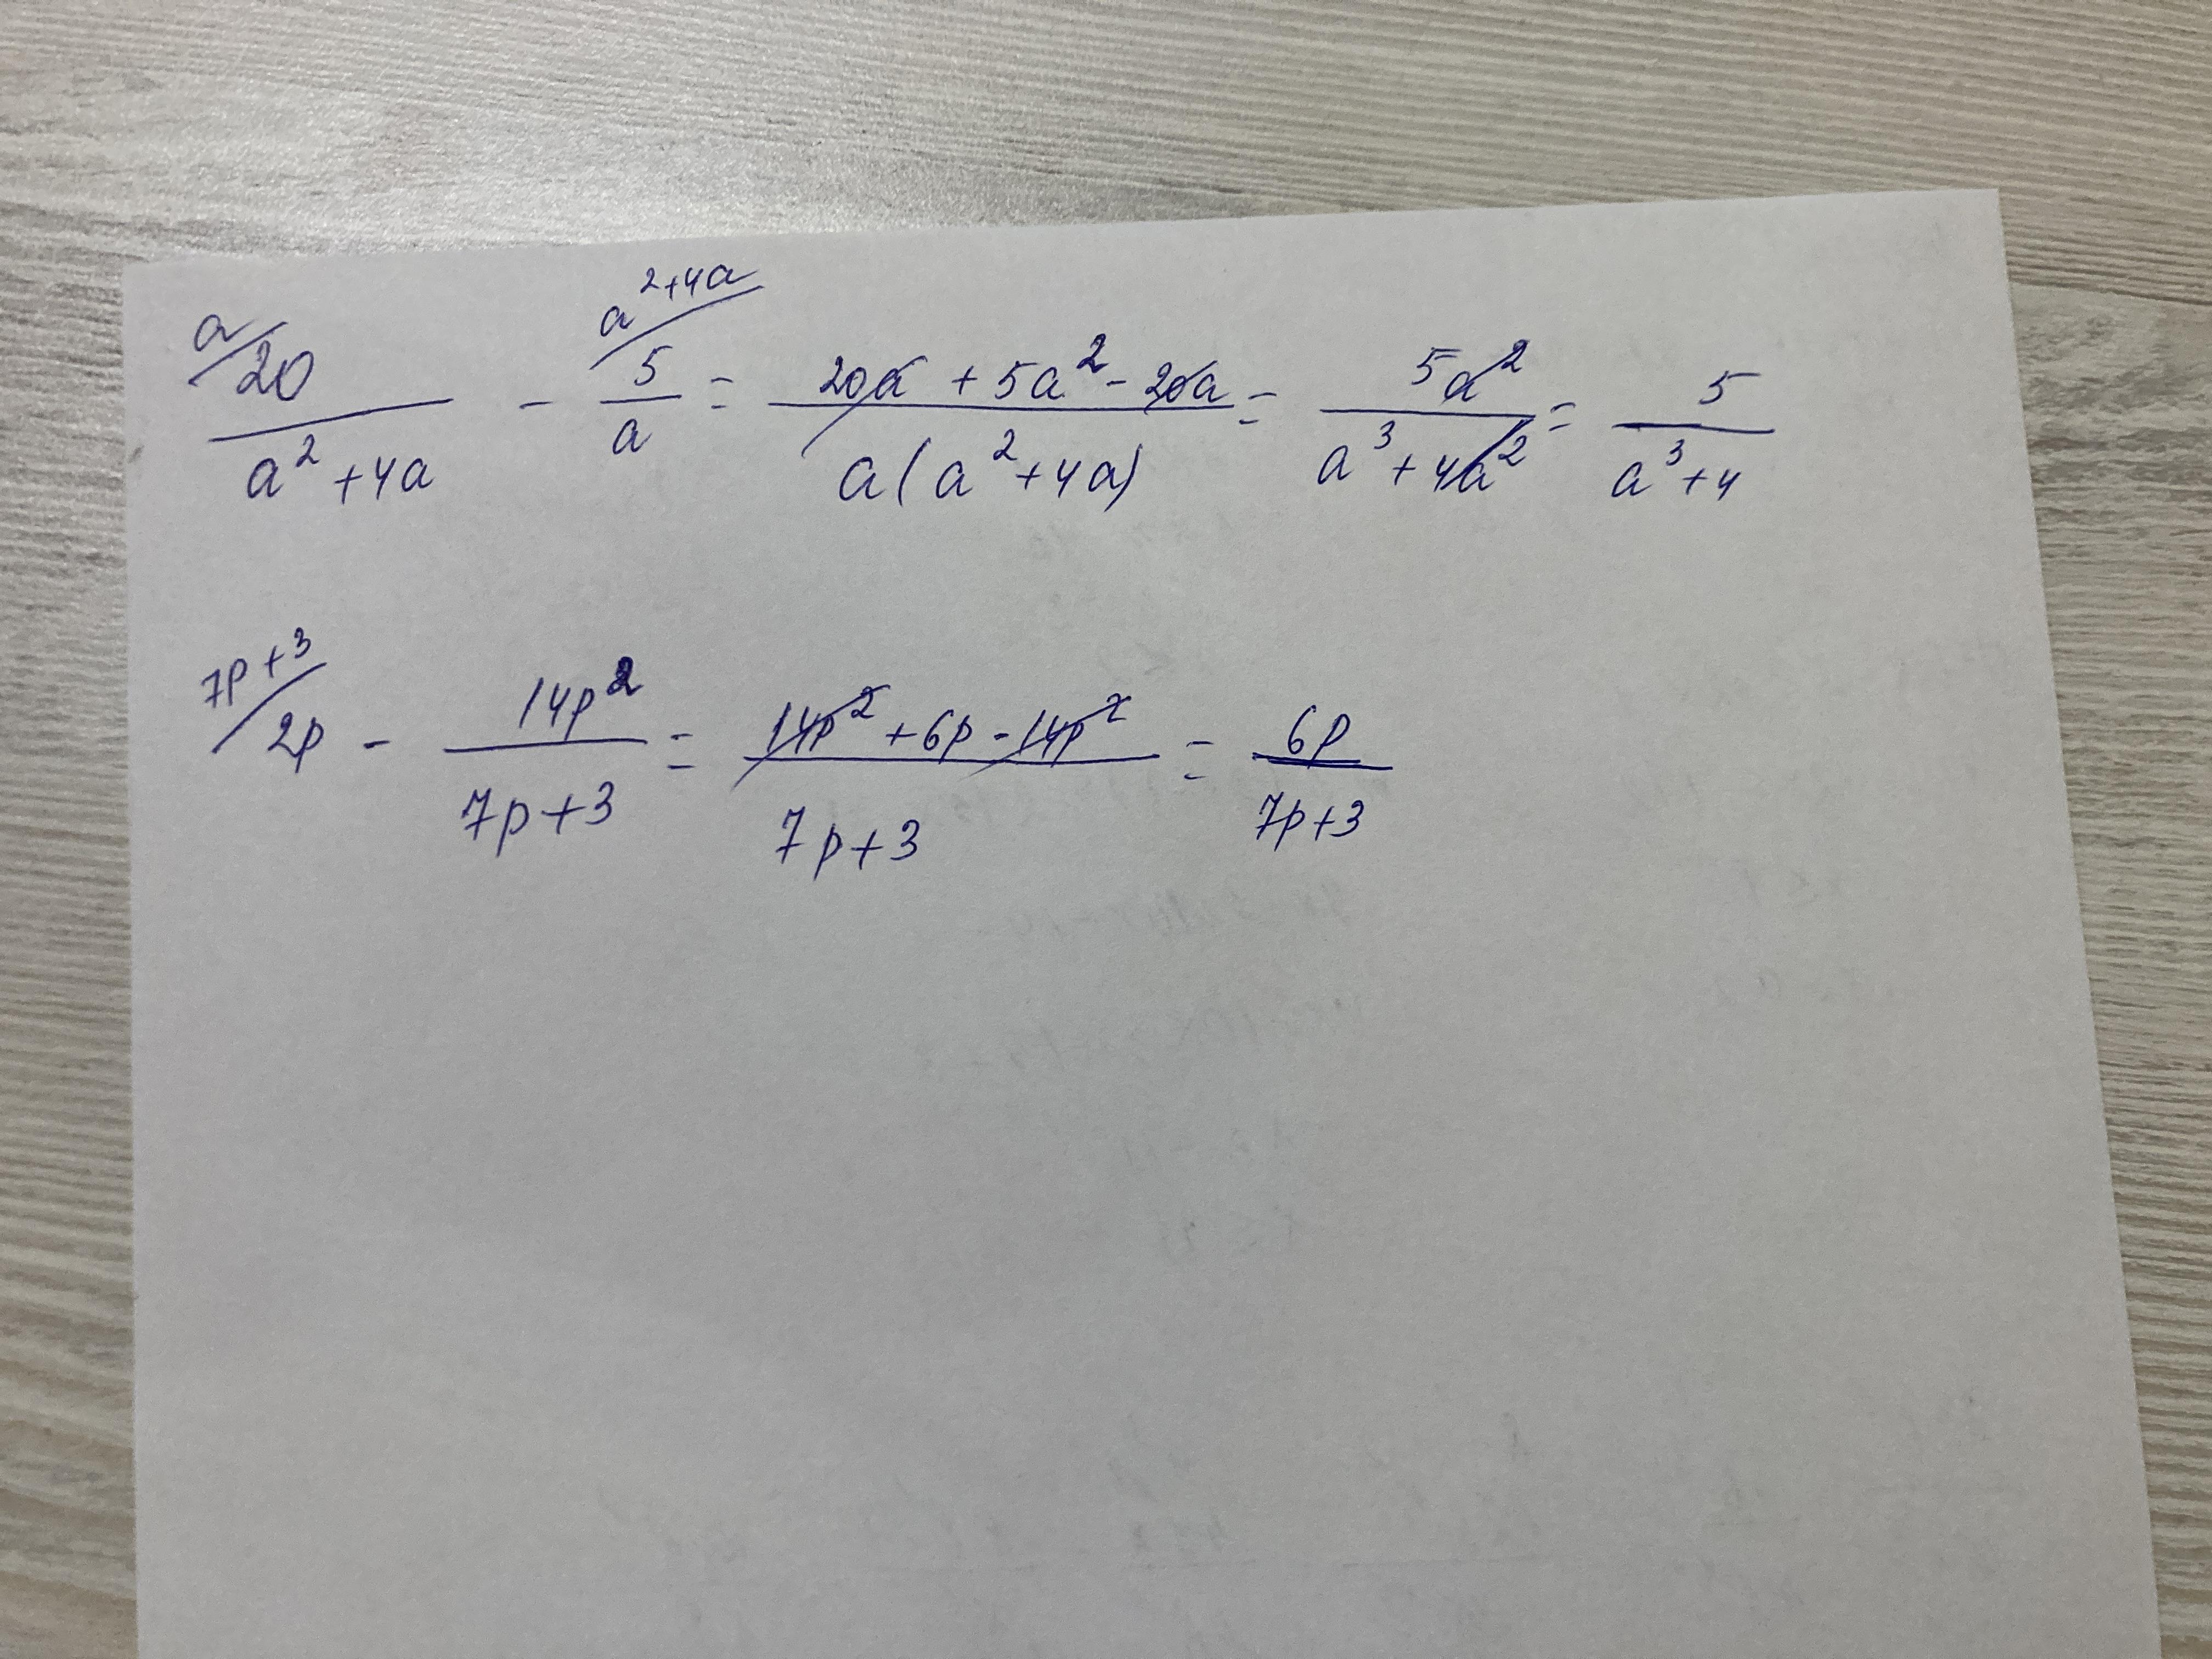 a/20/(a²+4a) - a²+4a/5/a = (20a + 5a² - 20a)/(a(a²+4a)) = 5a²/(a³+4a²) = 5/(a³+4)
7p+3/2p - 14p²/(7p+3) = (14p² + 6p - 14p²)/(7p+3) = 6p/(7p+3)